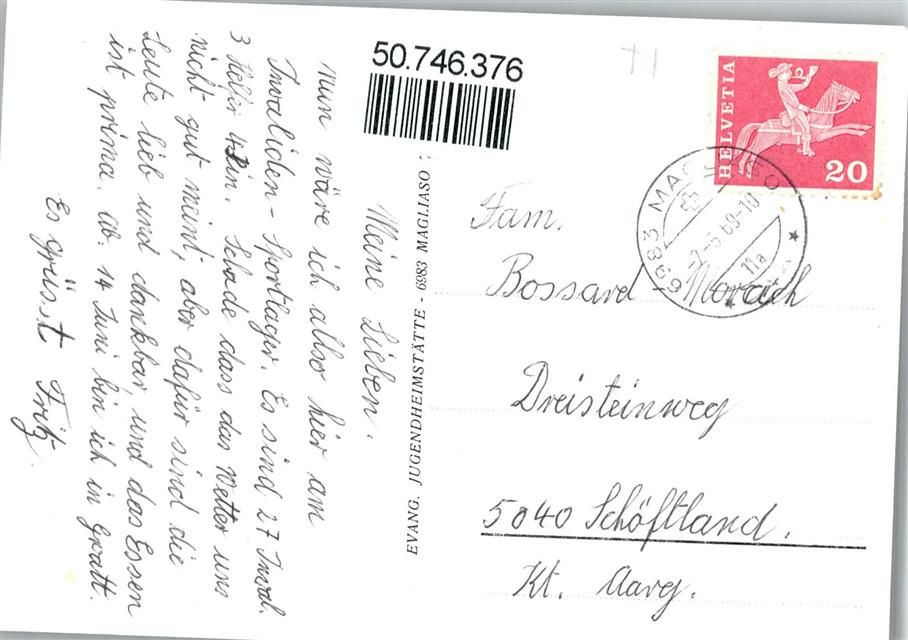 50.746.376
Meine Lieben.
Nun wäre ich also hier am
Invaliden-Sportlager. Es sind 27 Inval.
3 Helfer 4 Din. Schade dass das Wetter uns
nicht gut meint, aber dafür sind die
Leute lieb und dankbar, und das Essen
ist prima. ab. 14 Juni bin ich in Gratt.
Es grüsst Fritz.
EVANG. JUGENDHEIMSTÄTTE - 6983 MAGLIASO
HELVETIA
20
6983 MAGLIASO
-2-6 69-10
11a
Fam.
Bossard Morach
Dreisteinweg
5040 Schöftland.
Kt. Aarg.